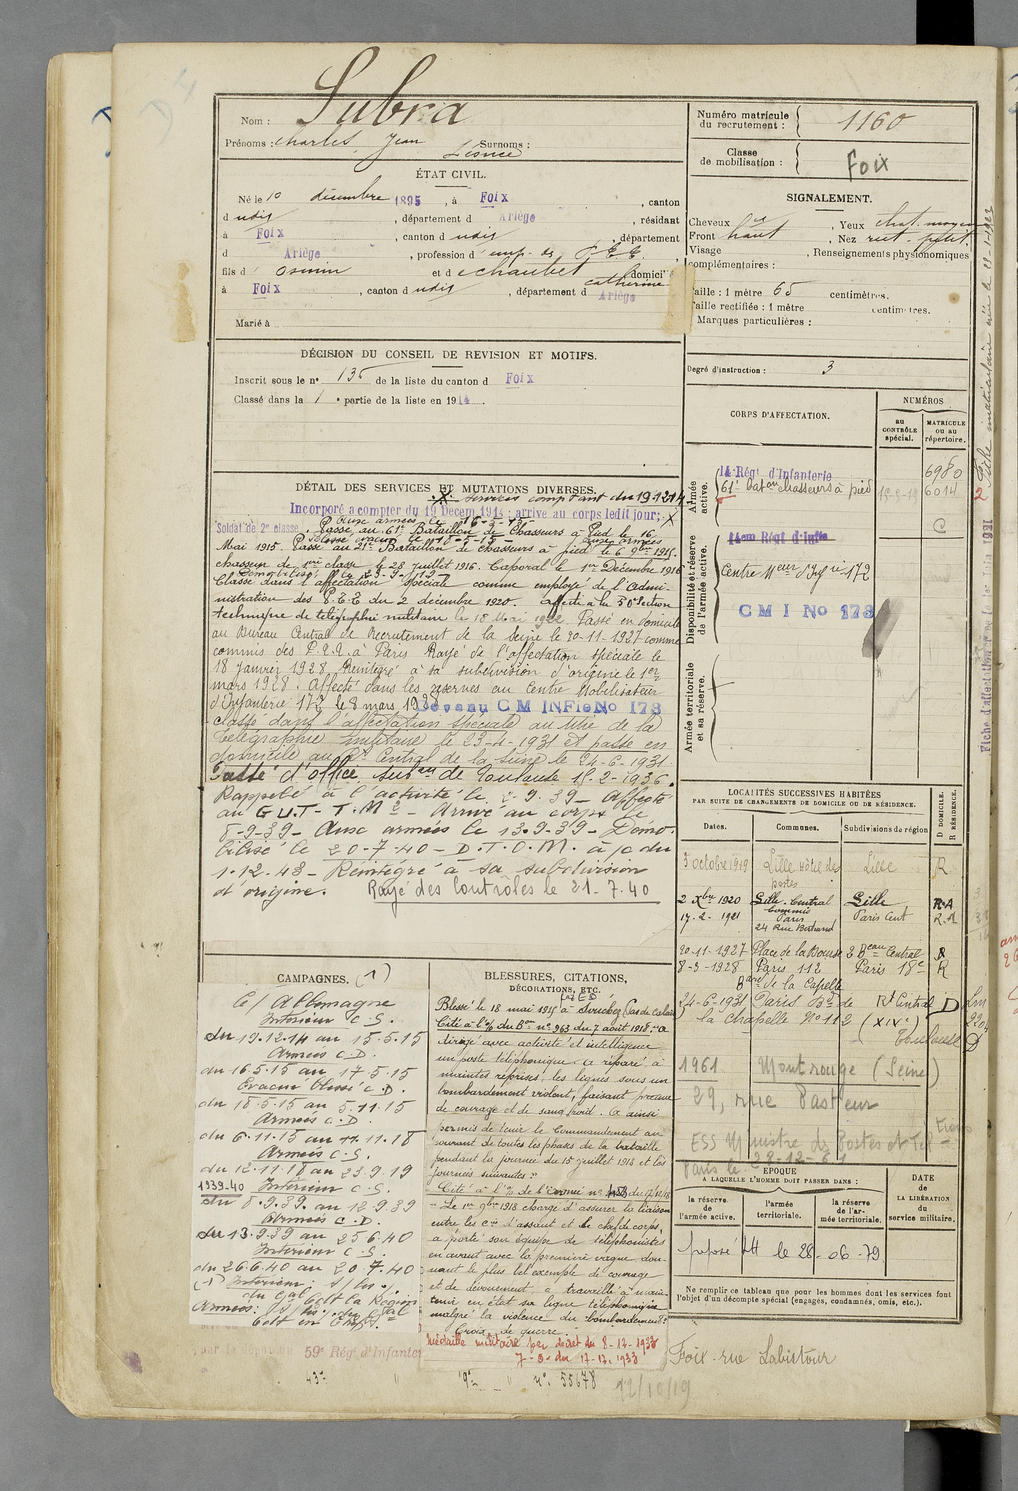 Nom : Subra
Prénoms : Charles, Jean Surnoms :
ÉTAT CIVIL.
Né le 10 décembre 1895, à Foix, canton
d udit, département d Ariège, résidant
à Foix, canton d udit, département
d Ariège, profession d' emp. des P.T.T.
fils d' Osmin et d echaubet Catherine domiciliés
à Foix, canton d udit, département d Ariège
Marié à
DÉCISION DU CONSEIL DE REVISION ET MOTIFS.
Inscrit sous le n° 135 de la liste du canton d Foix
Classé dans la 1e partie de la liste en 1914.
DÉTAIL DES SERVICES ET MUTATIONS DIVERSES.
X services comptant du 19.12.14
Incorporé a compter du 19 Décem 1914 ; arrivé au corps ledit jour; X
Soldat de 2e classe
Aux armées le 16-5-15
Passé au 61e Bataillon de Chasseurs à Pied le 16
Blessé évacué le 18-5-15 Aux armées
Mai 1915. Passé au 21e Bataillon de Chasseurs à pied le 6 9bre 1915.
chasseur de 1ère classe le 28 juillet 1916. Caporal le 1er Décembre 1916
Démobilisé le 23-9-19
Classé dans l'affectation spéciale comme employé de l'Admi-
nistration des P.T.T. du 2 décembre 1920. affecté à la Section
technique de télégraphie militaire le 18 Mai 1922. Passé en domicile
au Bureau Central de Recrutement de la Seine le 20-11-1927 comme
commis des P.T.T. à Paris Rayé de l'affectation spéciale le
18 janvier 1928 Réintégré à sa subdivision d'origine le 1er
mars 1928. Affecté dans les réserves au Centre Mobilisateur
d'Infanterie 172 le 8 mars 1928 Devenu C M INFie No 173
Classé dans l'affectation spéciale au titre de la
Télégraphie militaire le 23-4-1931 et passe en
domicile au Rt Central de la Seine le 24-6-1931
Passé d'office subon de Toulouse 15-2-1936.
Rappelé à l'activité le 2-9-39 - Affecté
au G.U.T. - T.M2 - Arrivé au corps le
8-9-39 - Aux armées le 13-9-39 - Démo-
bilisé le 20-7-40 - D.T.O.M. à/c du
1-12-43 - Réintégré à sa subdivision
d'origine. Rayé des Contrôles le 21-7-40
CAMPAGNES. (1)
C/ Allemagne
Intérieur C.S.
du 19.12.14 au 15.5.15
Armées C.D.
du 16.5.15 au 17.5.15
Evacué blessé C.D.
du 18.5.15 au 5.11.15
Armées C.D.
du 6.11.15 au 11.11.18
Armées C.S.
du 12.11.18 au 23.9.19
1939-40 Intérieur C.S.
du 8.9.39 au 12.9.39
Armées C.D.
du 13.9.39 au 25.6.40
Intérieur C.S.
du 26.6.40 au 20.7.40
BLESSURES, CITATIONS,
DÉCORATIONS, ETC.
Blessé le 18 mai 1915 à Souchez (Pas de Calais)
Cité à l'O/ du Bon n° 963 du 7 août 1918 : "a
dirigé avec activité et intelligence
un poste téléphonique - a réparé, à
maintes reprises, les lignes sous un
bombardement violent, faisant preuve
de courage et de sang froid. a ainsi
permis de tenir le Commandement au
courant de toutes les phases de la bataille
pendant la journée du 15 juillet 1918 et les
journées suivantes."
Cité à l'O/ de l'armée n° du
Le 1er 9bre 1918 chargé d'assurer la liaison
entre les Cies d'assaut et le chef de corps,
a porté son équipe de téléphonistes
en avant avec la première vague don-
nant le plus bel exemple de courage
et de dévouement, a travaillé à main-
tenir en état sa ligne téléphonique
malgré la violence du bombardement.
Croix de guerre.
Médaille militaire par décret du 8-12-1933
J.O. du 17-12-1933
59e Régt d'Infanterie
n° 55678
22/10/19
Numéro matricule du recrutement : 1160
Classe de mobilisation : Foix
SIGNALEMENT.
Cheveux , Yeux chat. moyen
Front haut , Nez rect. petit.
Visage , Renseignements physionomiques
complémentaires :
Taille : 1 mètre 65 centimètres.
Taille rectifiée : 1 mètre centimètres.
Marques particulières :
Degré d'instruction : 3
CORPS D'AFFECTATION.
NUMÉROS
au CONTRÔLE spécial.
MATRICULE OU AU répertoire.
Armée active.
14 Régt d'Infanterie 6980
61e Baton chasseurs à pied 6014
Disponibilité et réserve de l'armée active.
14em Régt d'Infie
Centre Meur d'Infie 172
C M I No 173
Armée territoriale et sa réserve.
LOCALITÉS SUCCESSIVES HABITÉES
PAR SUITE DE CHANGEMENTS DE DOMICILE OU DE RÉSIDENCE.
Dates. Communes. Subdivisions de région D DOMICILE. R RÉSIDENCE.
3 octobre 1919 Lille Hôtel des postes Lille R
2 Xbre 1920 Lille-Central Commis Lille R.A
17-2-1921 Paris 24 Rue Bertrand Paris Cent R.A
20-11-1927 Place de la Bourse 2 Beau Central R
8-3-1928 Paris 112 Bard de la Capelle Paris 18e R
24-6-1931 Paris Bd de la Chapelle N° 112 (XIXe) Rt Central D
Toulouse D
1961 Montrouge (Seine)
29, rue Pasteur
ESS Ministre des Postes et Tél
Paris le 28-12-61
EPOQUE
A LAQUELLE L'HOMME DOIT PASSER DANS :
la réserve de l'armée active.
l'armée territoriale.
la réserve de l'armée territoriale.
DATE de LA LIBÉRATION du service militaire.
le 28-06-79
Ne remplir ce tableau que pour les hommes dont les services font
l'objet d'un décompte spécial (engagés, condamnés, omis, etc.).
Foix - rue Labistour